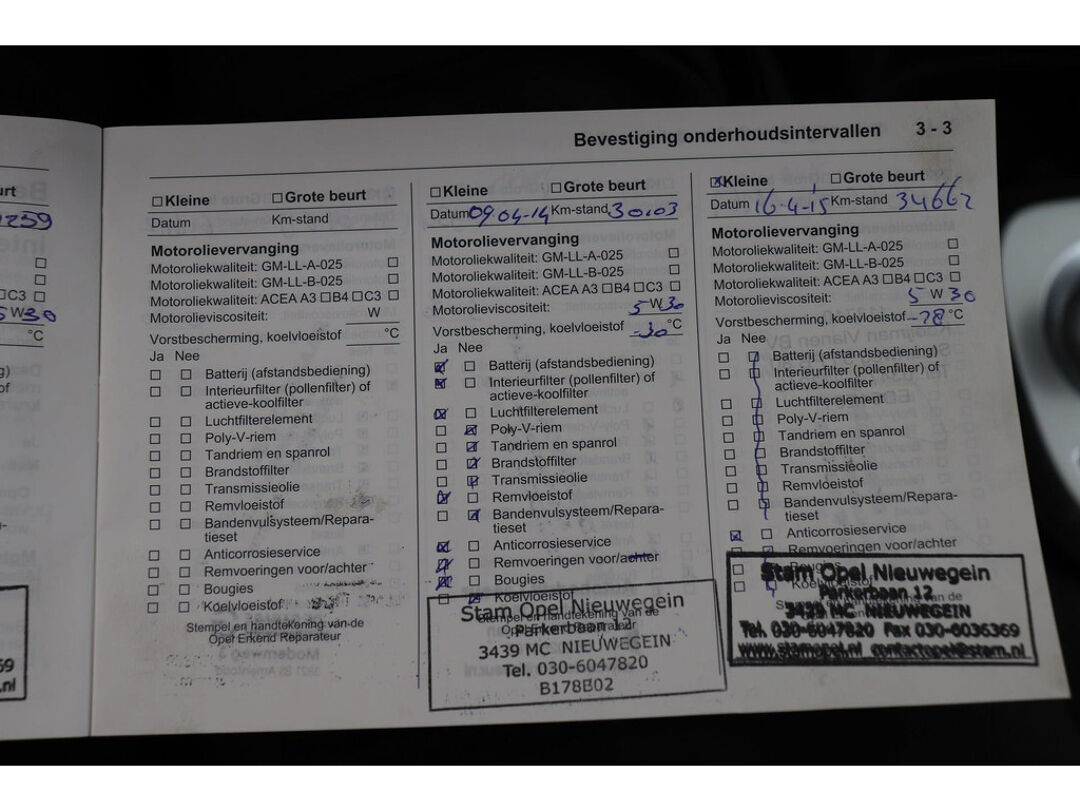 Bevestiging onderhoudsintervallen 3 - 3
urt
1259
C3
5 W 30
°C
g)
of
69
.nl
Kleine Grote beurt
Datum Km-stand
Motorolievervanging
Motoroliekwaliteit: GM-LL-A-025
Motoroliekwaliteit: GM-LL-B-025
Motoroliekwaliteit: ACEA A3 B4 C3
Motorolieviscositeit: W
Vorstbescherming, koelvloeistof °C
Ja Nee
Batterij (afstandsbediening)
Interieurfilter (pollenfilter) of
actieve-koolfilter
Luchtfilterelement
Poly-V-riem
Tandriem en spanrol
Brandstoffilter
Transmissieolie
Remvloeistof
Bandenvulsysteem/Repara-
tieset
Anticorrosieservice
Remvoeringen voor/achter
Bougies
Koelvloeistof
Stempel en handtekening van de
Opel Erkend Reparateur
Kleine Grote beurt
Datum 09 04-14 Km-stand 30103
Motorolievervanging
Motoroliekwaliteit: GM-LL-A-025
Motoroliekwaliteit: GM-LL-B-025
Motoroliekwaliteit: ACEA A3 B4 C3
Motorolieviscositeit: 5 W 30
Vorstbescherming, koelvloeistof -30 °C
Ja Nee
Batterij (afstandsbediening)
Interieurfilter (pollenfilter) of
actieve-koolfilter
Luchtfilterelement
Poly-V-riem
Tandriem en spanrol
Brandstoffilter
Transmissieolie
Remvloeistof
Bandenvulsysteem/Repara-
tieset
Anticorrosieservice
Remvoeringen voor/achter
Bougies
Koelvloeistof
Stempel en handtekening van de
Stam Opel Nieuwegein
Parkerbaan 12
3439 MC NIEUWEGEIN
Tel. 030-6047820
B178B02
Kleine Grote beurt
Datum 16-4-15 Km-stand 34662
Motorolievervanging
Motoroliekwaliteit: GM-LL-A-025
Motoroliekwaliteit: GM-LL-B-025
Motoroliekwaliteit: ACEA A3 B4 C3
Motorolieviscositeit: 5 W 30
Vorstbescherming, koelvloeistof -28 °C
Ja Nee
Batterij (afstandsbediening)
Interieurfilter (pollenfilter) of
actieve-koolfilter
Luchtfilterelement
Poly-V-riem
Tandriem en spanrol
Brandstoffilter
Transmissieolie
Remvloeistof
Bandenvulsysteem/Repara-
tieset
Anticorrosieservice
Remvoeringen voor/achter
Bougies
Koelvloeistof
Stam Opel Nieuwegein
Parkerbaan 12
3439 MC NIEUWEGEIN
Tel. 030-6047820 Fax 030-6036369
www.stamopel.nl contactopel@stam.nl